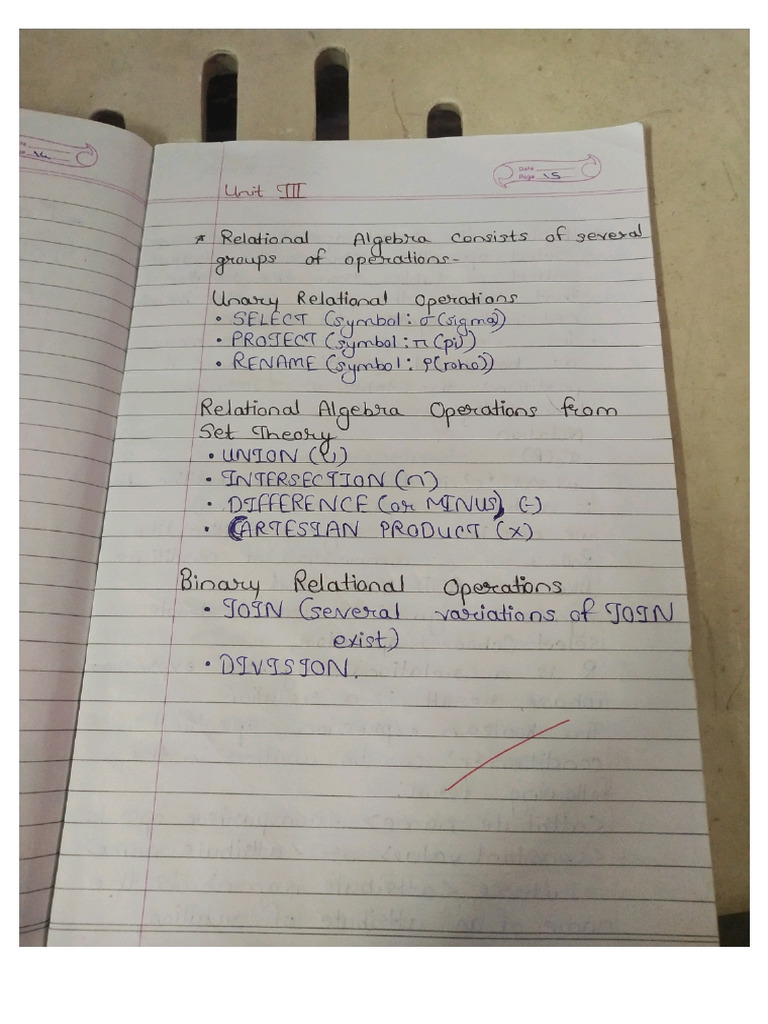 Date
Page 15
Unit III
* Relational Algebra consists of several
groups of operations-
Unary Relational Operations
• SELECT (symbol: σ (sigma))
• PROJECT (symbol: π (pi))
• RENAME (symbol: ρ (roho))
Relational Algebra Operations from
Set Theory
• UNION (∪)
• INTERSECTION (∩)
• DIFFERENCE (or MINUS), (-)
• CARTESIAN PRODUCT (x)
Binary Relational Operations
• JOIN (several variations of JOIN
exist)
• DIVISION.